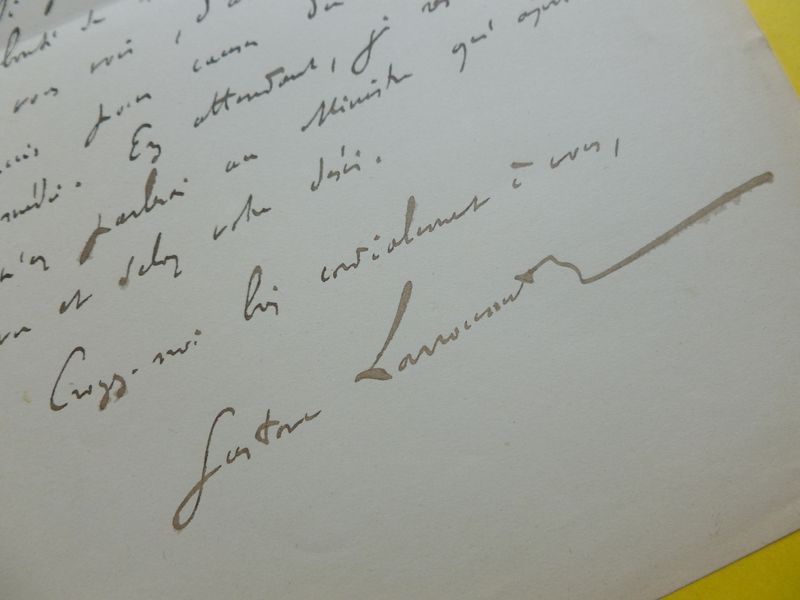 bonté de
vous voir, d'a
pour causer de
. En attendant, je
parlerai au Ministre qui
et selon votre désir.
Croyez-moi bien cordialement à vous,
Gustave Larroumet